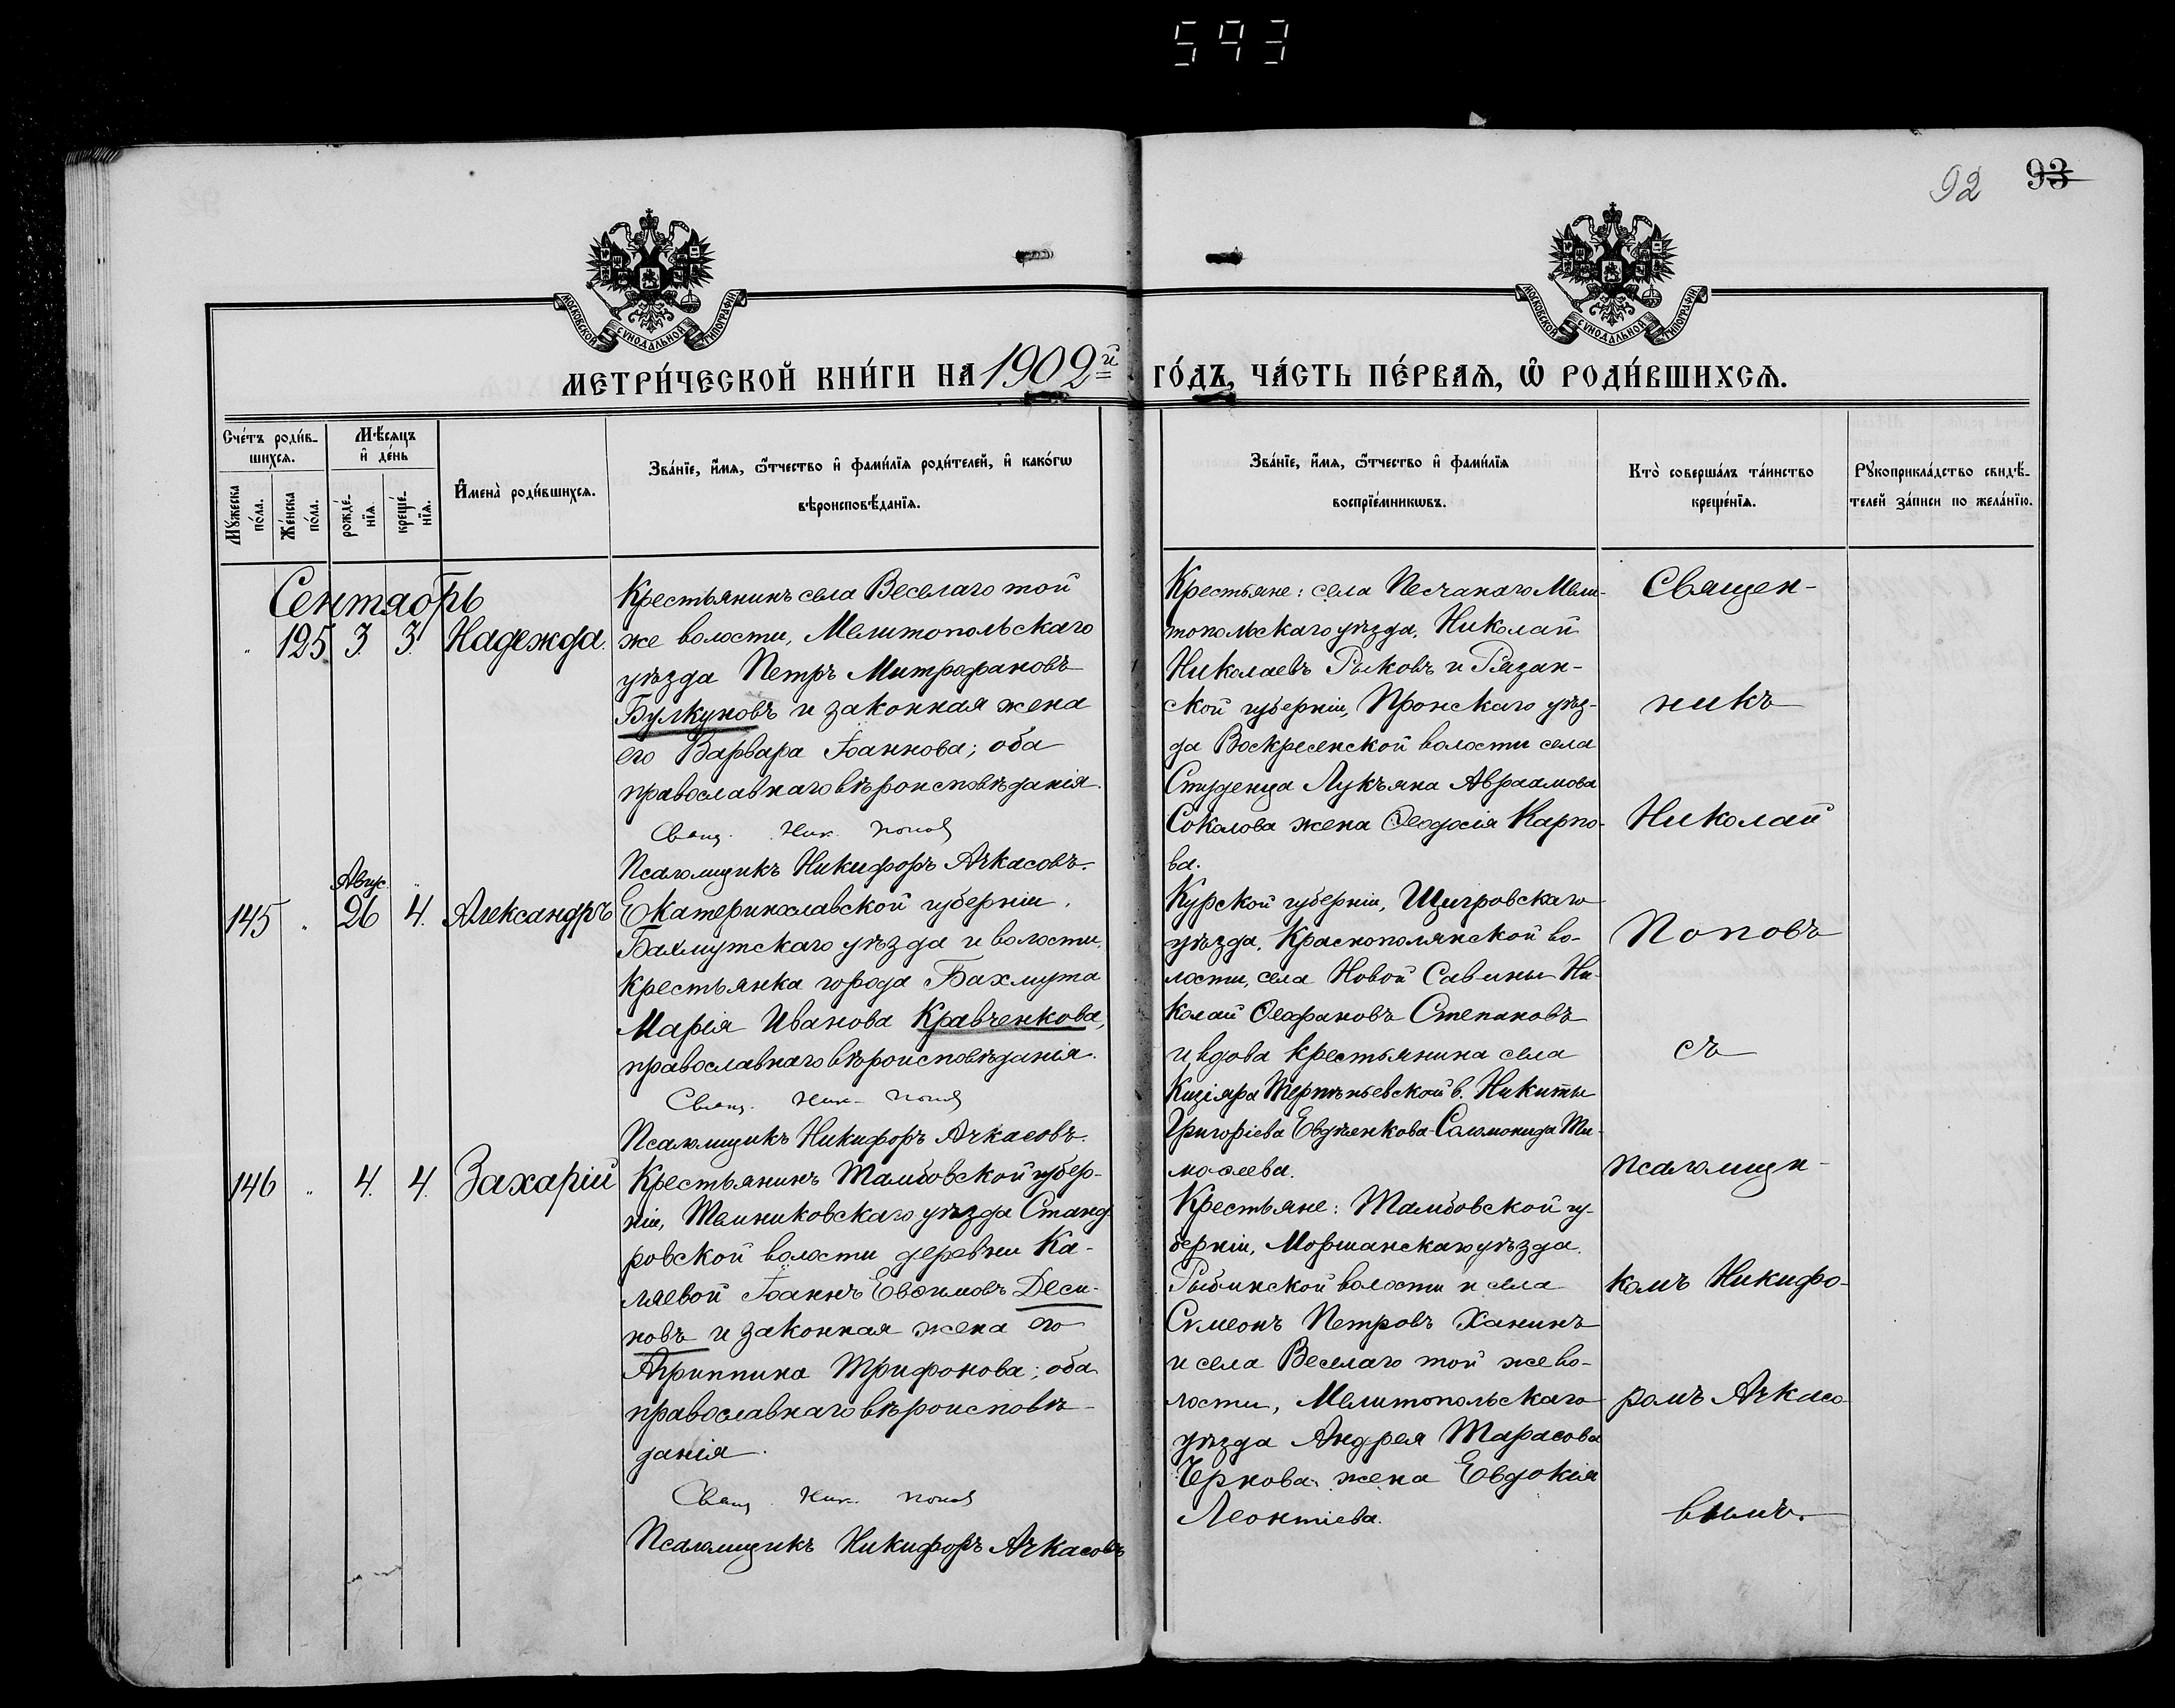 593
92 93
МОСКОВСКОЙ СѴНОДАЛЬНОЙ ТИПОГРАФІИ
МОСКОВСКОЙ СѴНОДАЛЬНОЙ ТИПОГРАФІИ
МЕТРИ́ЧЕСКОЙ КНИ́ГИ НА 1902й ГО́ДЪ, ЧА́СТЬ ПЕ́РВАѦ, Ѡ҆ РОДИ́ВШИХСѦ.
Сче́тъ роди́в-
шихсѧ.
Мѣ́сѧцъ
и҆ де́нь
Мꙋ́жеска
по́ла.
Же́нска
по́ла.
рожде́-
нїѧ.
креще́-
нїѧ.
И҆мена̀ роди́вшихсѧ.
Зва́нїе, и҆́мѧ, ѻ҆́тчество и҆ фами́лїѧ роди́телей, и҆ како́гѡ
вѣроисповѣ́данїѧ.
Зва́нїе, и҆́мѧ, ѻ҆́тчество и҆ фами́лїѧ
воспрїе́мникѡвъ.
Кто̀ соверша́лъ та́инство
креще́нїѧ.
Рꙋкоприкла́дство свидѣ́-
телей за́писи по жела́нїю.
Сентябрь
" 125 3. 3. Надежда.
Крестьянинъ села Веселаго той
же волости, Мелитопольскаго
уѣзда Петръ Митрофановъ
Булкуновъ и законная жена
его Варвара Іоаннова; оба
православнаго вѣроисповѣданія.
Свящ. Ник. Попов
Псаломщикъ Никифоръ Ачкасовъ.
Крестьяне: села Песчанаго Мели-
топольскаго уѣзда, Николай
Николаевъ Рыковъ и Рязан-
ской губерніи, Пронскаго уѣз-
да Воскресенской волости села
Студенца Лукъяна Авраамова
Соколова жена Ѳеодосія Карпо-
ва.
Авгус. "
145 " 26 4. Александръ
Екатеринославской губерніи,
Бахмутскаго уѣзда и волости,
крестьянка города Бахмута
Марія Иванова Кравченкова,
православнаго вѣроисповѣданія.
Свящ. Ник. Попов
Псаломщикъ Никифоръ Ачкасовъ.
Курской губерніи, Щигровскаго
уѣзда, Краснополянской во-
лости, села Новой Савины Ни-
колай Ѳеофановъ Степановъ
и вдова крестьянина села
Кизіяра Терпѣньевской в. Никиты
Григоріева Евдѣенкова Соломонида Ти-
моѳеева.
146 " 4. 4. Захарій
Крестьянинъ Тамбовской губер-
ніи, Темниковскаго уѣзда Станд-
ровской волости деревни Ка-
ляевой Іоаннъ Евѳимовъ Деси-
новъ и законная жена его
Агриппина Трифонова; оба
православнаго вѣроисповѣ-
данія.
Свящ. Ник. Попов
Псаломщикъ Никифоръ Ачкасовъ
Крестьяне: Тамбовской гу-
берніи, Моршанскаго уѣзда,
Рыбинской волости и села
Сѵмеонъ Петровъ Ханинъ
и села Веселаго той же во-
лости, Мелитопольскаго
уѣзда Андрея Тарасова
Чернова жена Евдокія
Леонтіева.
Священ-
никъ
Николай
Поповъ
съ
псаломщи-
комъ Никифо-
ромъ Ачкасо-
вымъ.